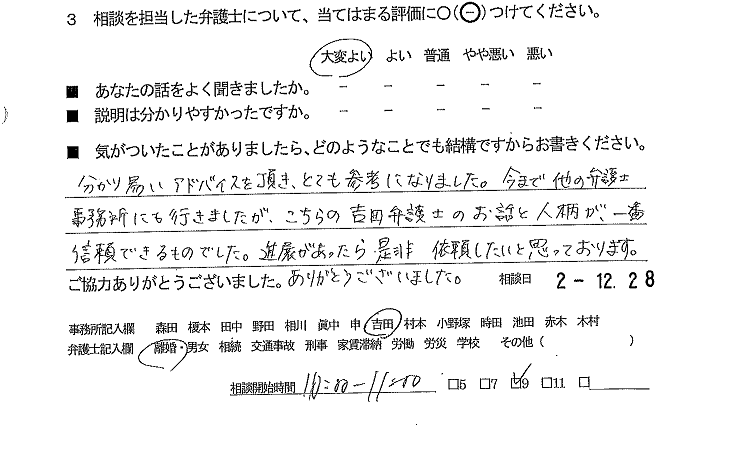 3 相談を担当した弁護士について、当てはまる評価に○(⊖)つけてください。
大変よい よい 普通 やや悪い 悪い
■ あなたの話をよく聞きましたか。 － － － － －
■ 説明は分かりやすかったですか。 － － － － －
■ 気がついたことがありましたら、どのようなことでも結構ですからお書きください。
分かり易いアドバイスを頂き、とても参考になりました。今まで他の弁護士
事務所にも行きましたが、こちらの吉田弁護士のお話と人柄が、一番
信頼できるものでした。進展があったら是非 依頼したいと思っております。
ご協力ありがとうございました。ありがとうございました。 相談日 2-12.28
事務所記入欄 森田 榎本 田中 野田 相川 眞中 申 吉田 村本 小野塚 時田 池田 赤木 木村
弁護士記入欄 離婚・男女 相続 交通事故 刑事 家賃滞納 労働 労災 学校 その他( )
相談開始時間 10:00-11:00 □5 □7 ☑9 □11 □